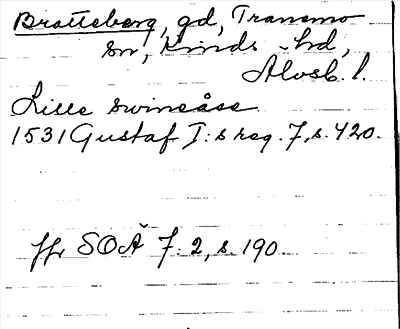 Bratteberg, gd, Tranemo
sn, Kinds hd,
Älvsb. l.
Lille Swineåss
1531 Gustaf I:s reg. 7, s. 420.
Jfr SOÄ 7:2, s. 190.